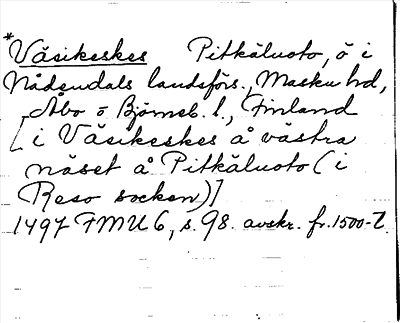 *Väsikeskes Pitkäluoto, ö i
Nådendals landsförs., Masku hd,
Åbo o Björneb. l., Finland
[i Väsikeskes å västra
näset å Pitkäluoto (i
Reso socken)]
1497 FMU 6, s. 98. avskr. fr. 1500-t.